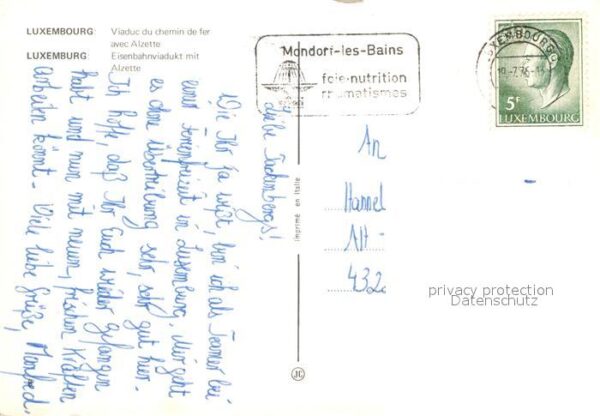 LUXEMBOURG: Viaduc du chemin de fer
avec Alzette
LUXEMBURG: Eisenbahnviadukt mit
Alzette
Mondorf-les-Bains
foie-nutrition
rhumatismes
LUXEMBOURG
5F
LUXEMBOURG
Liebe
Wie Ihr ja wißt, bin ich als Teamer bei
einer Ferienfreizeit in Luxemburg. Mir geht
es ohne Übertreibung sehr, sehr gut hier.
Ich hoffe, daß Ihr Euch wieder gefangen
habt und nun mit neuen, frischen Kräften
arbeiten könnt. Viele liebe Grüße, Manfred
imprimé en Italie
An
Hannel
Alt-
432
privacy protection
Datenschutz